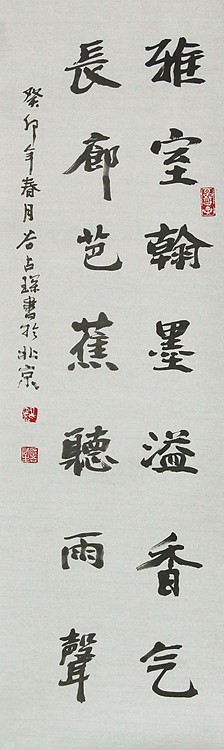 雅室翰墨溢香气
長廊芭蕉聽雨聲
癸卯年春月谷占琛書於北京